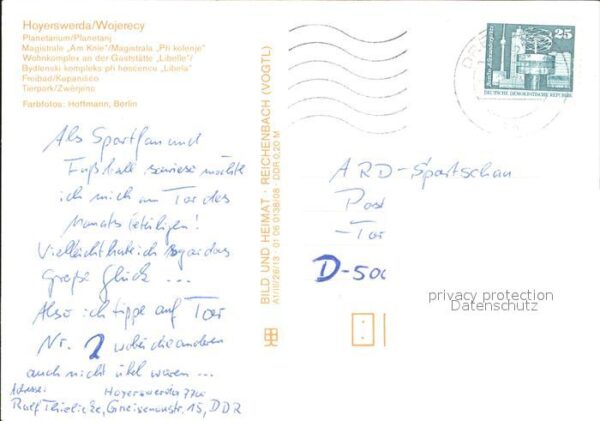 Hoyerswerda/Wojerecy
Planetarium/Planetarij
Magistrale „Am Knie"/Magistrala „Při kolenje"
Wohnkomplex an der Gaststätte „Libelle"/
Bydlenski kompleks při hosćencu „Libela"
Freibad/Kupanišćo
Tierpark/Zwěrjenc
Farbfotos: Hoffmann, Berlin
Als Sportfan und
Fußball möchte
ich mich am Tor des
Monats beteiligen!
Vielleicht habe ich sogar das
Große Glück ...
Also ich tippe auf Tor
Nr. 2 wobei die anderen
auch nicht übel waren ...
Adresse: Hoyerswerda 7700
Ralf Thielicke, Gneisenaustr. 15, DDR
BILD UND HEIMAT · REICHENBACH (VOGTL)
A1/III/26/13 · 01 06 0138/08 · DDR 0,20 M
25
DEUTSCHE DEMOKRATISCHE REPUBLIK
ARD-Sportschau
Post
-Tor
D-500
privacy protection
Datenschutz